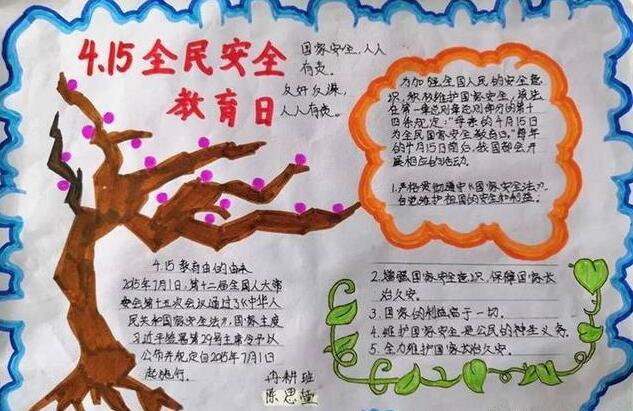 4.15全民安全
教育日
国家安全,人人
有责。
人人有责。
为加强全国人民的安全意
识,积极维护国家安全,该法
在第一章总则
四条规定:"每年的4月15日
为全民国家安全教育日。"每年
的4月15日前后,我国都会开
展相应的活动。
1.严格贯彻遵守《国家安全法》,
自觉维护祖国的安全和利益。
2.增强国家安全意识,保障国家长
治久安。
3.国家的利益高于一切。
4.维护国家安全是公民的神圣义务。
5.全力维护国家长治久安。
4.15教育日的由来
2015年7月1日,第十二届全国人大常
委会第十五次会议通过了《中华人
民共和国国家安全法》。国家主席
习近平签署第29号主席令予以
公布并规定自2015年7月1日
起施行。
冉耕班
陈思